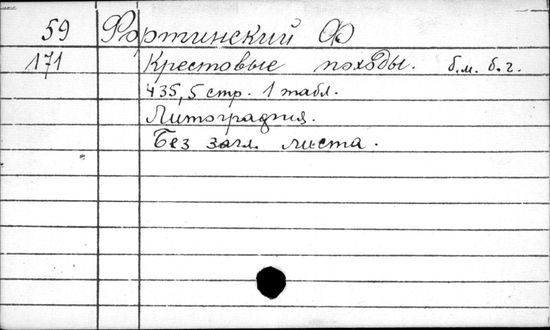 59 Фортинский Ф
171 Крестовые походы. б.м. б.г.
435, 5 стр. 1 табл.
Литография.
Без загл. листа.